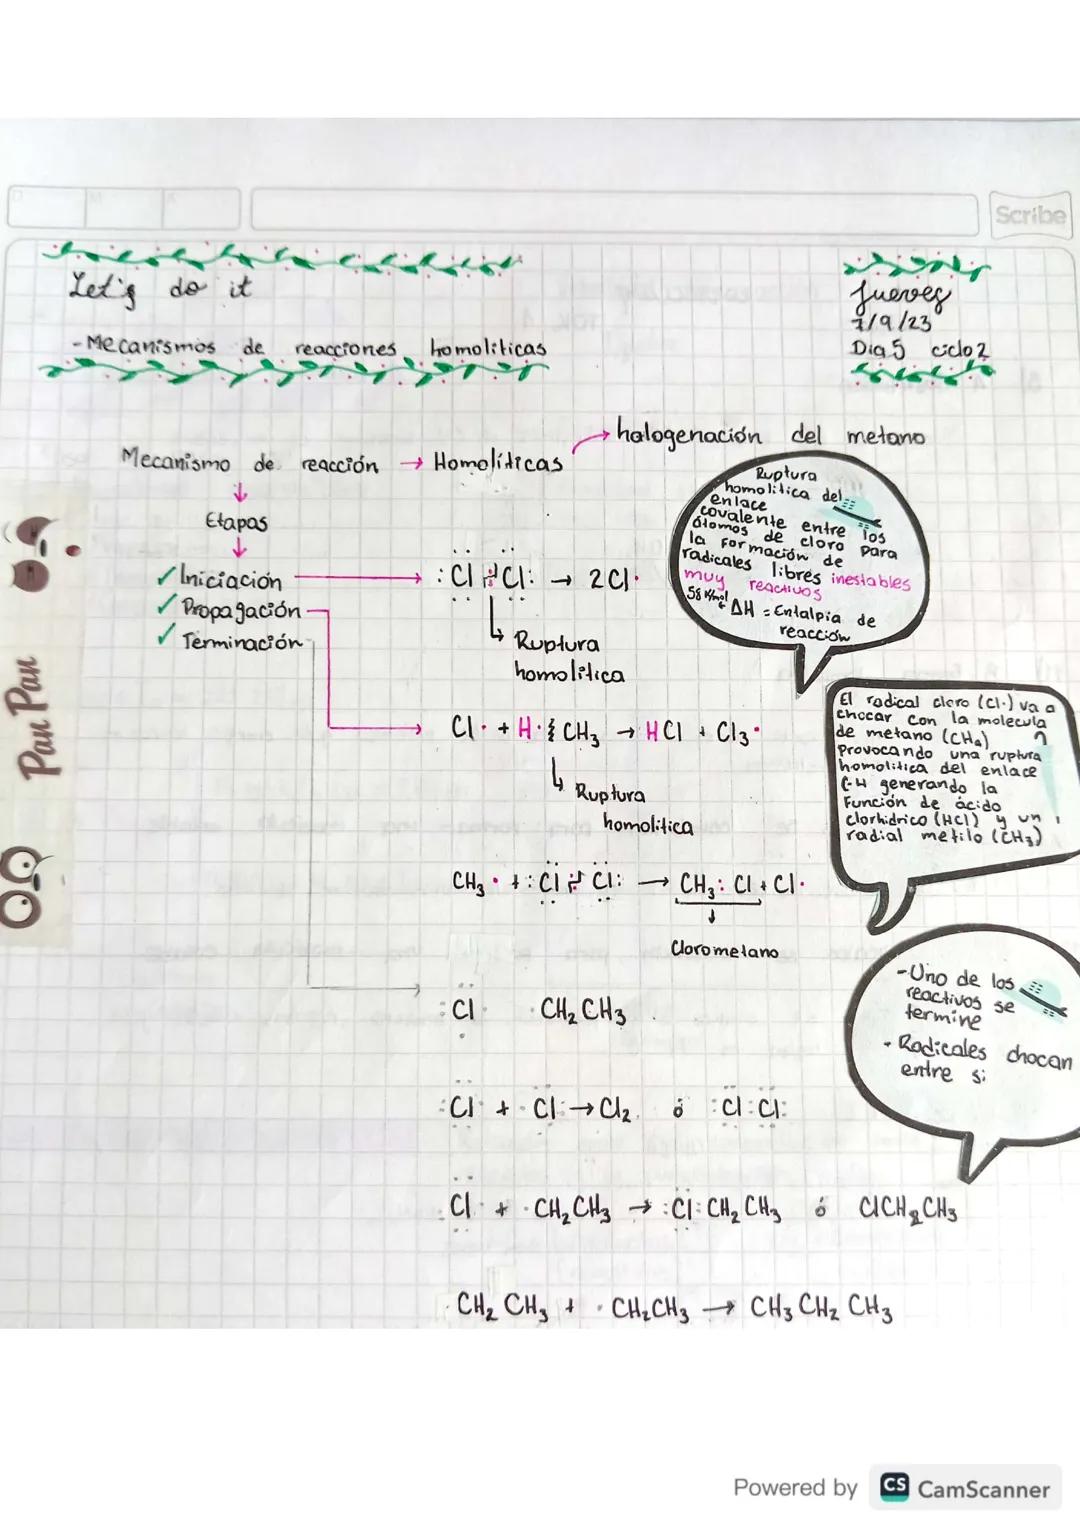 Scribe
Let's do it
Jueves
7/9/23
-Mecanismos de reacciones homoliticas
Dia 5 ciclo 2
→ halogenación del metano
Mecanismo de reacción → Homolíticas
Etapas
✓ Iniciación
✓ Propagación
✓ Terminación
:Cl : Cl: → 2Cl·
Ruptura
homolitica
Ruptura
homolitica del
enlace
covalente entre los
átomos de cloro para
la formación de
radicales libres inestables
muy reactivos
ΔH = Entalpia de
reacción
Cl· + H·CH₃ → HCl + Cl₃·
Ruptura
homolitica
El radical cloro (Cl·) va a
chocar con la molecula
de metano (CH₄)
Provocando una ruptura
homolitica del enlace
C-H generando la
Función de ácido
clorhidrico (HCl) y un
radial metilo (CH₃)
CH₃· + :Cl : Cl: → CH₃: Cl + Cl·
Clorometano
-Uno de los
reactivos se
termine
- Radicales chocan
entre si
:Cl· ·CH₂CH₃
:Cl· + ·Cl: → Cl₂ ó :Cl:Cl:
:Cl· + ·CH₂CH₃ → :Cl:CH₂CH₃ ó ClCH₂CH₃
·CH₂CH₃ + ·CH₂CH₃ → CH₃CH₂CH₃
Pan Pan
Powered by CS CamScanner